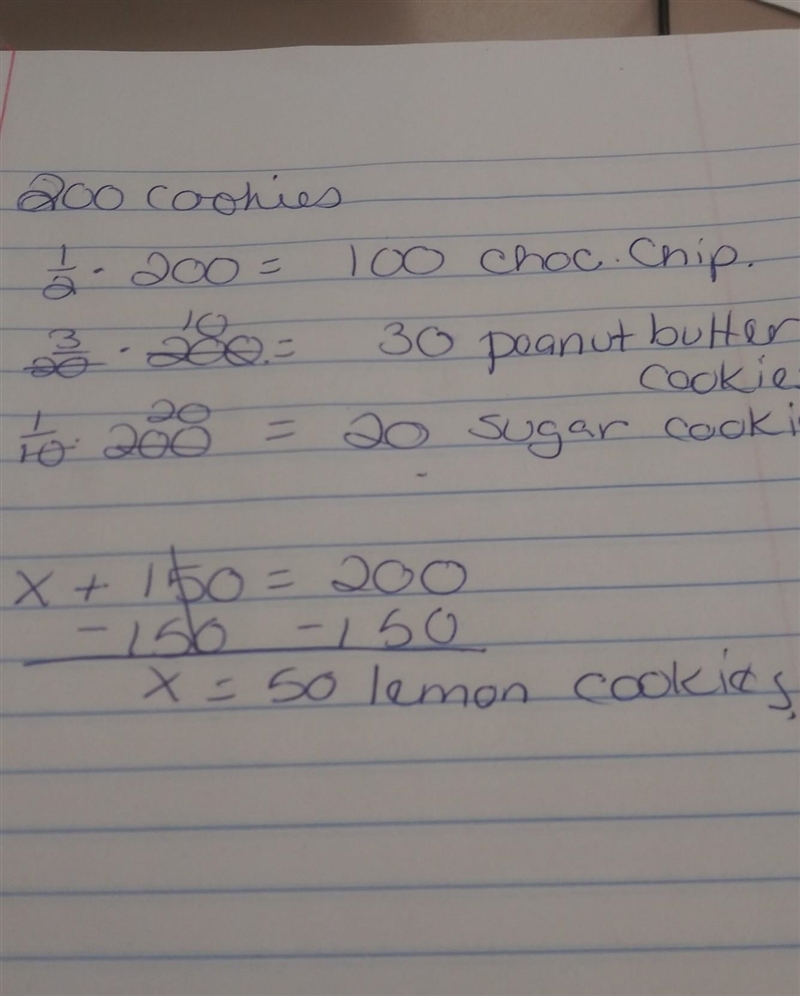 200 cookies
1/2 · 200 = 100 choc. chip.
10
3/20 · 200. = 30 peanut butter
cookie
20
1/10 · 200 = 20 sugar cooki
-
x + 150 = 200
-150 -150
x = 50 lemon cookies,